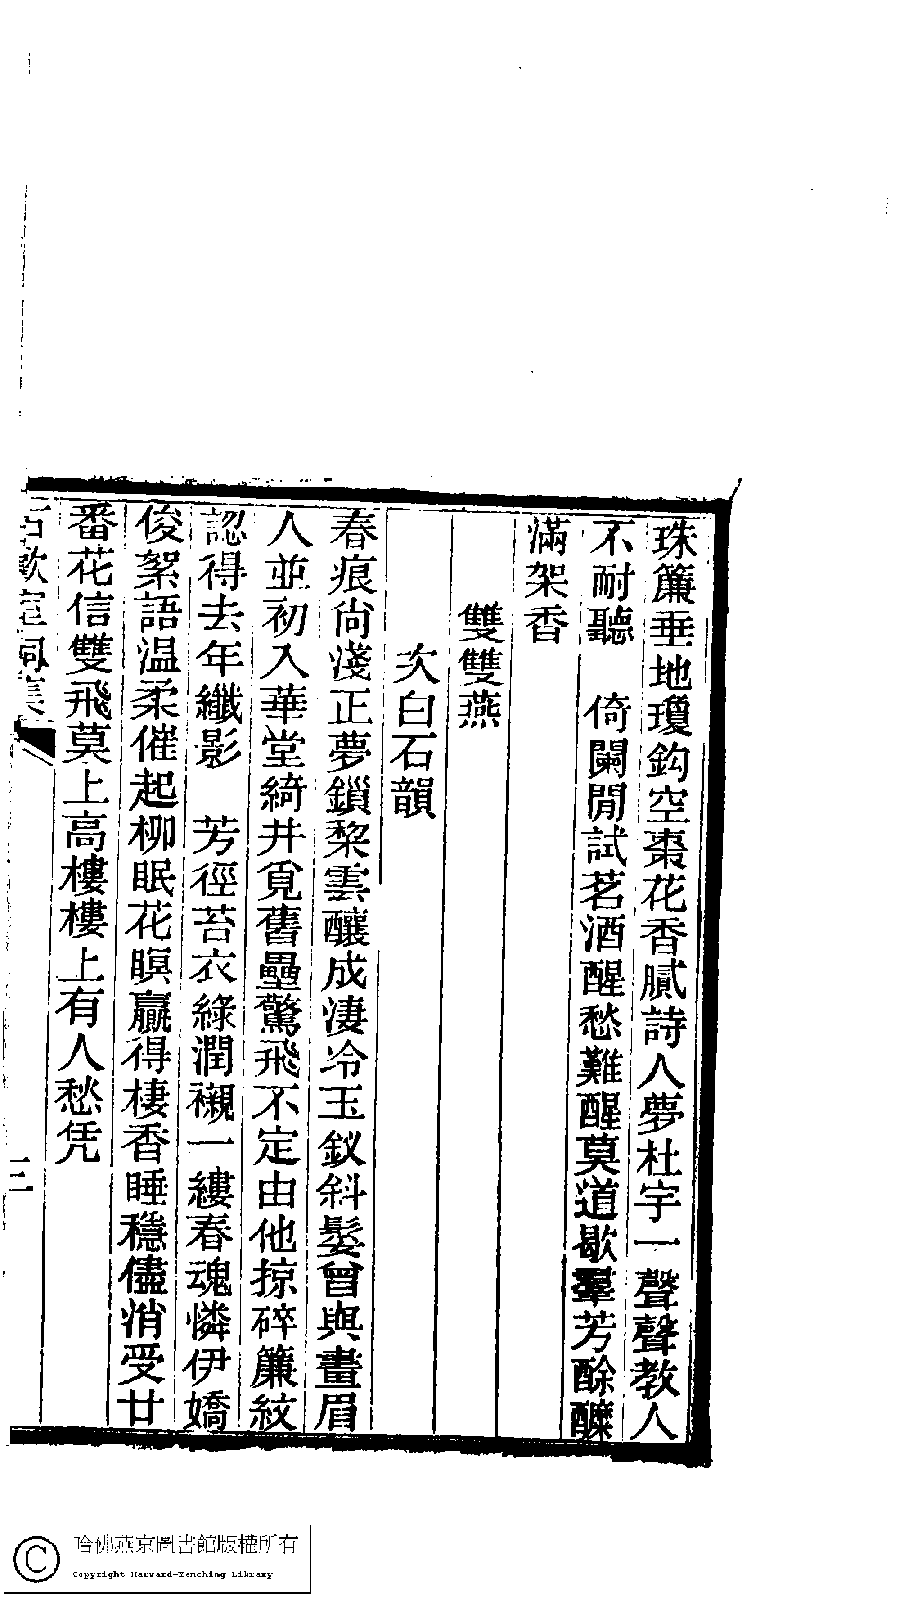 珠簾垂地瓊鈎空棗花香膩詩人夢杜宇一聲聲教人
不耐聽　倚闌閒試茗酒醒愁難醒莫道歇羣芳酴醾
滿架香
雙雙燕
次白石韻
春痕尙淺正夢鎖棃雲釀成淒冷玉釵斜鬢曾與畫眉
人並初入華堂綺井覓舊壘驚飛不定由他掠碎簾紋
認得去年纖影　芳徑苔衣綠潤襯一縷春魂憐伊嬌
俊絮語温柔催起柳眠花瞑贏得棲香睡穩儘消受廿
番花信雙飛莫上高樓樓上有人愁凭
詞集
三
哈佛燕京圖書館版權所有
Copyright Harvard-Yenching Library